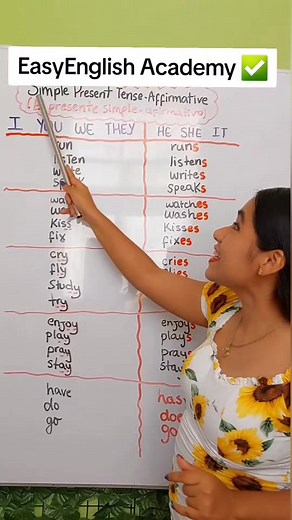 EasyEnglish Academy ✅
Simple Present Tense-Affirmative
presente simple-afirmativo)
I YOU WE THEY HE SHE IT
run runs
listen listens
write writes
speak speaks
watches
washes
kiss kisses
fix fixes
cry cries
fly
study
try
enjoy enjoys
play plays
pray prays
stay
have has
do
go